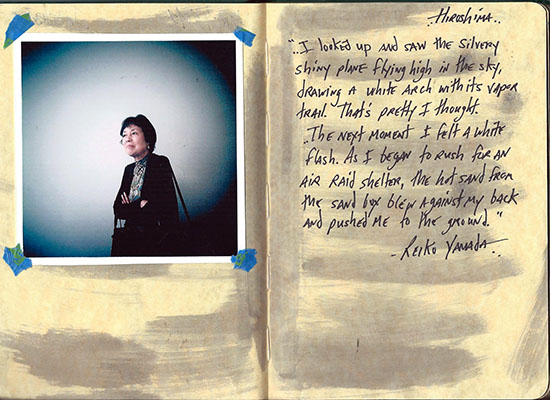 ..Hiroshima..
"..I looked up and saw the silvery
shiny plane flying high in the sky,
drawing a white arch with its vapor
trail. That's pretty I thought.
..The next moment I felt a white
flash. As I began to rush for an
air raid shelter, the hot sand from
the sand box blew against my back
and pushed me to the ground."
- Reiko Yamada..